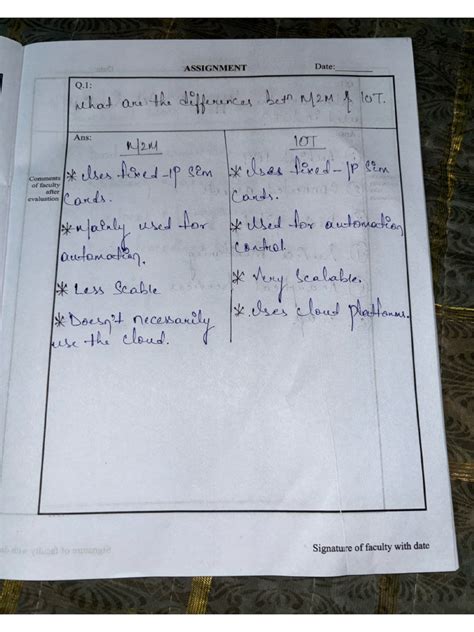 ASSIGNMENT Date:
Q.1:
What are the differences betn M2M & IOT.
Ans:
M2M
IOT
Comments
of faculty
after
evaluation
* Uses fixed-IP Sim
Cards.
* Mainly used for
automation.
* Less Scable
* Doesn't necessarily
use the cloud.
* Uses fixed-IP Sim
Cards.
* Used for automation
Control.
* Very Scalable.
* Uses Cloud Platforms.
Signature of faculty with date